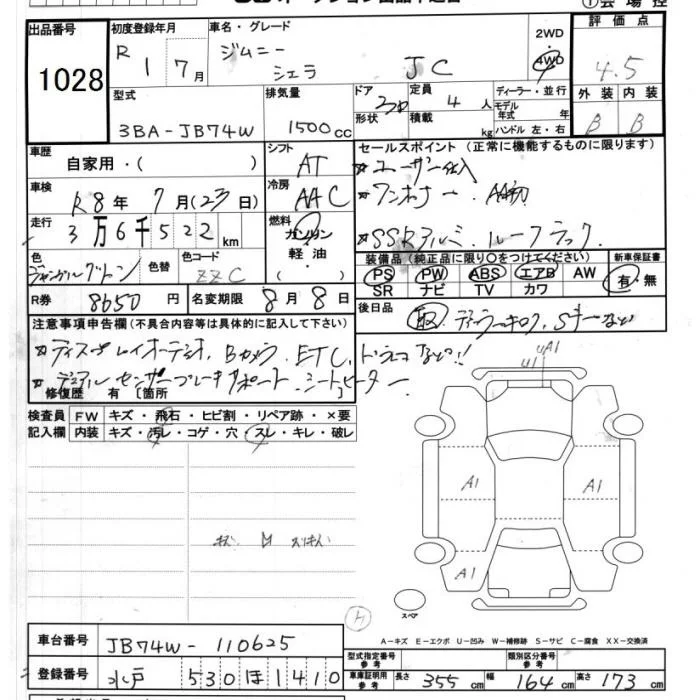 出品番号 初度登録年月 車名・グレード 2WD 評価点
1028 R1 7月 ジムニー シエラ JC 4WD 4.5
型式 排気量 ドア 定員 ディーラー・並行 外装 内装
3BA-JB74W 1500cc 3 形状 4人 積載 kg モデル年式 年 ハンドル 左・右 B B
車歴 自家用・( ) シフト AT セールスポイント (正常に機能するものに限ります)
★ユーザー仕入
車検 R8年7月(23日) 冷房 AAC ★ワンオーナー AA初
走行 3万6千522km 燃料 ガソリン 軽油 ( ) ★SSRアルミ、ルーフラック、
色 ジャングルグリーン 色替 色コード ZZC
装備品 (純正品に限り○をつけてください) 新車保証書
PS PW ABS エアB AW 有・無
SR ナビ TV カワ
R券 8650円 名変期限 8月8日 後日品 取、ディーラーキロク、Sキーなど
注意事項申告欄 (不具合内容等は具体的に記入して下さい)
★ディスプレイオーディオ、Bカメラ、ETC、ドラレコなど!!
★デュアルセンサーブレーキサポート、シートヒーター
修復歴 有 [箇所
検査員 FW キズ・飛石・ヒビ割・リペア跡・×要
記入欄 内装 キズ・汚レ・コゲ・穴・スレ・キレ・破レ
UA1
U1
A1 A1
A1
スペア
A-キズ E-エクボ U-凹み W-補修跡 S-サビ C-腐食 XX-交換済
車台番号 JB74W-110625 型式指定番号 参考 類別区分番号 参考
登録番号 水戸 530 ほ 1410 車庫証明用 参考 長さ 355cm 幅 164cm 高さ 173cm